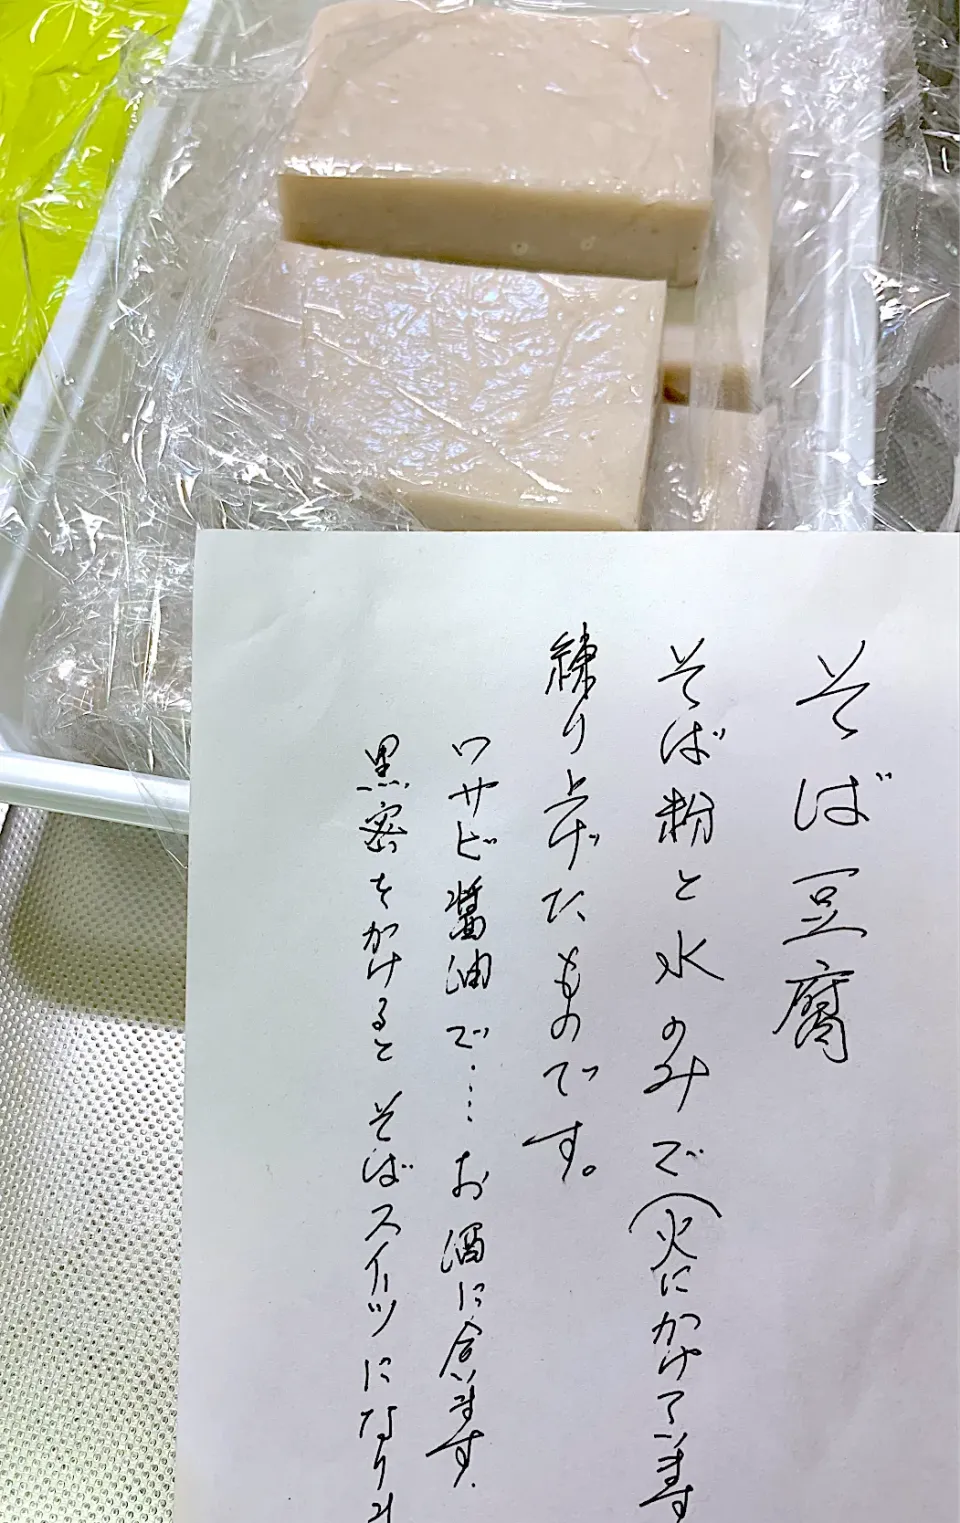 そば豆腐
そば粉と水のみで(火にかけています
練り上げたものです。
ワサビ醤油で……お酒に合います.
黒蜜をかけると そばスイーツになりま